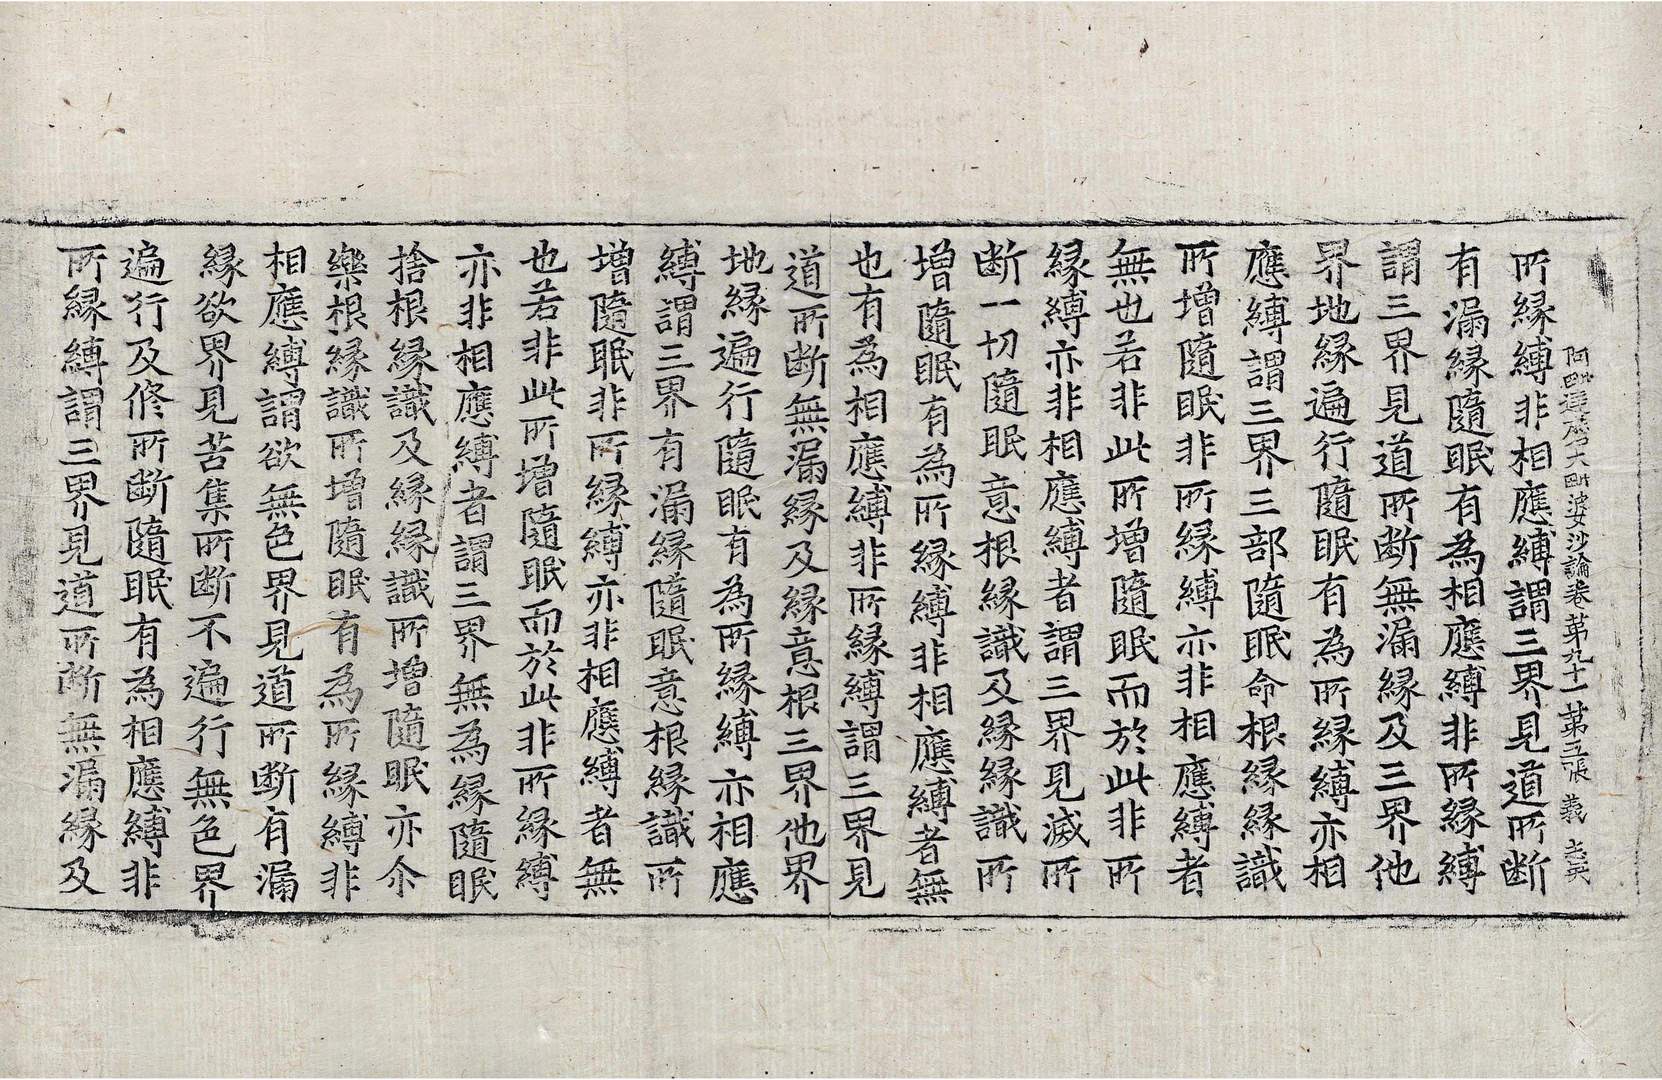 阿毗達磨大毗婆沙論卷第九十一 第三張 義
所緣縛非相應縛謂三界見道所斷
有漏緣隨眠有為相應縛非所緣縛
謂三界見道所斷無漏緣及三界他
界地緣遍行隨眠有為所緣縛亦相
應縛謂三界三部隨眠命根緣緣識
所增隨眠非所緣縛亦非相應縛者
無也若非此所增隨眠而於此非所
緣縛亦非相應縛者謂三界見滅所
斷一切隨眠意根緣識及緣緣識所
增隨眠有為所緣縛非相應縛者無
也有為相應縛非所緣縛謂三界見
道所斷無漏緣及緣意根三界他界
地緣遍行隨眠有為所緣縛亦相應
縛謂三界有漏緣隨眠意根緣識所
增隨眠非所緣縛亦非相應縛者無
也若非此所增隨眠而於此非所緣縛
亦非相應縛者謂三界無為緣隨眠
捨根緣識及緣緣識所增隨眠亦尒
樂根緣識所增隨眠有為所緣縛非
相應縛謂欲無色界見道所斷有漏
緣欲界見苦集所斷不遍行無色界
遍行及修所斷隨眠有為相應縛非
所緣縛謂三界見道所斷無漏緣及